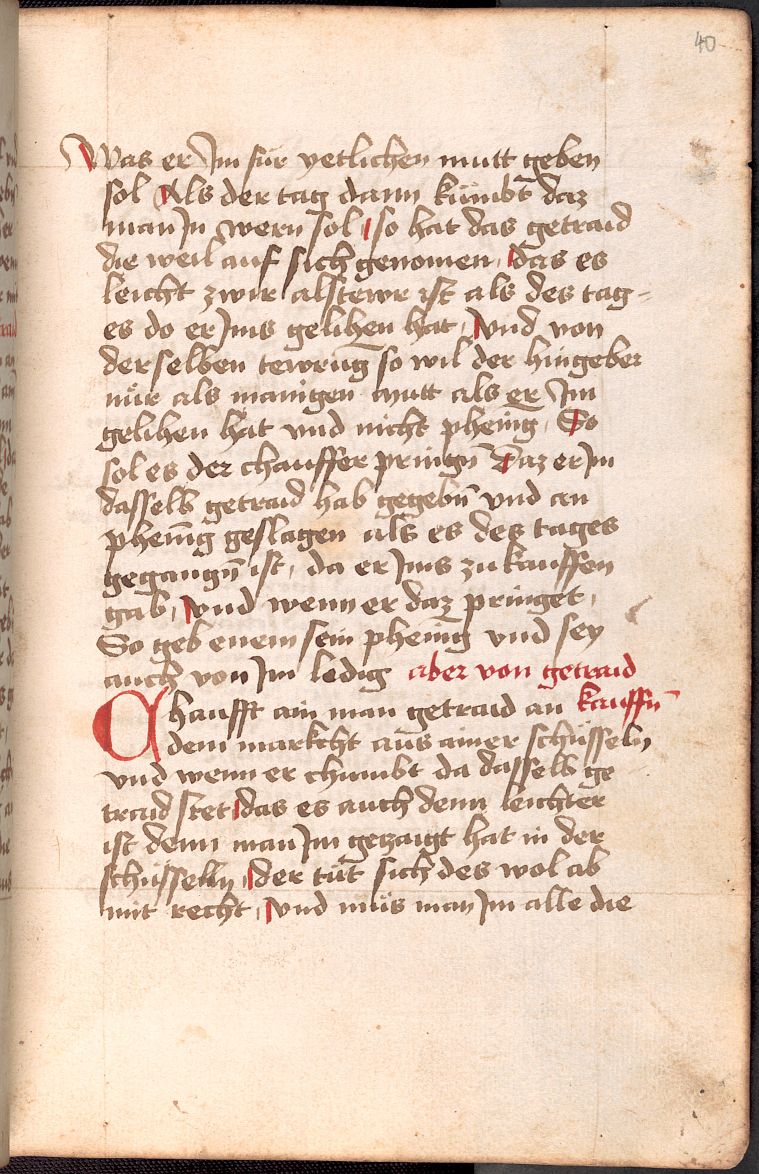 40
Was er Im für yetlichen mutt geben
sol Als der tag dann kümbt daz
man In wern sol / so hat das getraid
die weil auf sich genomen / das es
leicht zwir als tewr ist als des tag-
es do er Ims gelihen hat / vnd von
derselben tewrūg so wil der hingeber
nür als manigen mutt als er Im
gelihen hat vnd nicht phenīg / So
sol es der chauffer pringn̄ Daz er Im
dasselb getraid hab gegebn̄ vnd an
phenīg geslagen als es des tages
gegangn̄ ist / da er Ims zu kauffen
gab / vnd wenn er daz pringet /
So geb enem sein phenīg vnd sey
auch von Im ledig aber von getraid
Chaufft ain man getraid an kauffn̄
dem markcht aus ainer schüsseln
vnd wenn er chumbt da dasselb ge
traid stet das es auch denn leichter
ist denn man Im gezaigt hat in der
schüsselln / der tüt sich des wol ab
mit recht / vnd müs man Im alle die